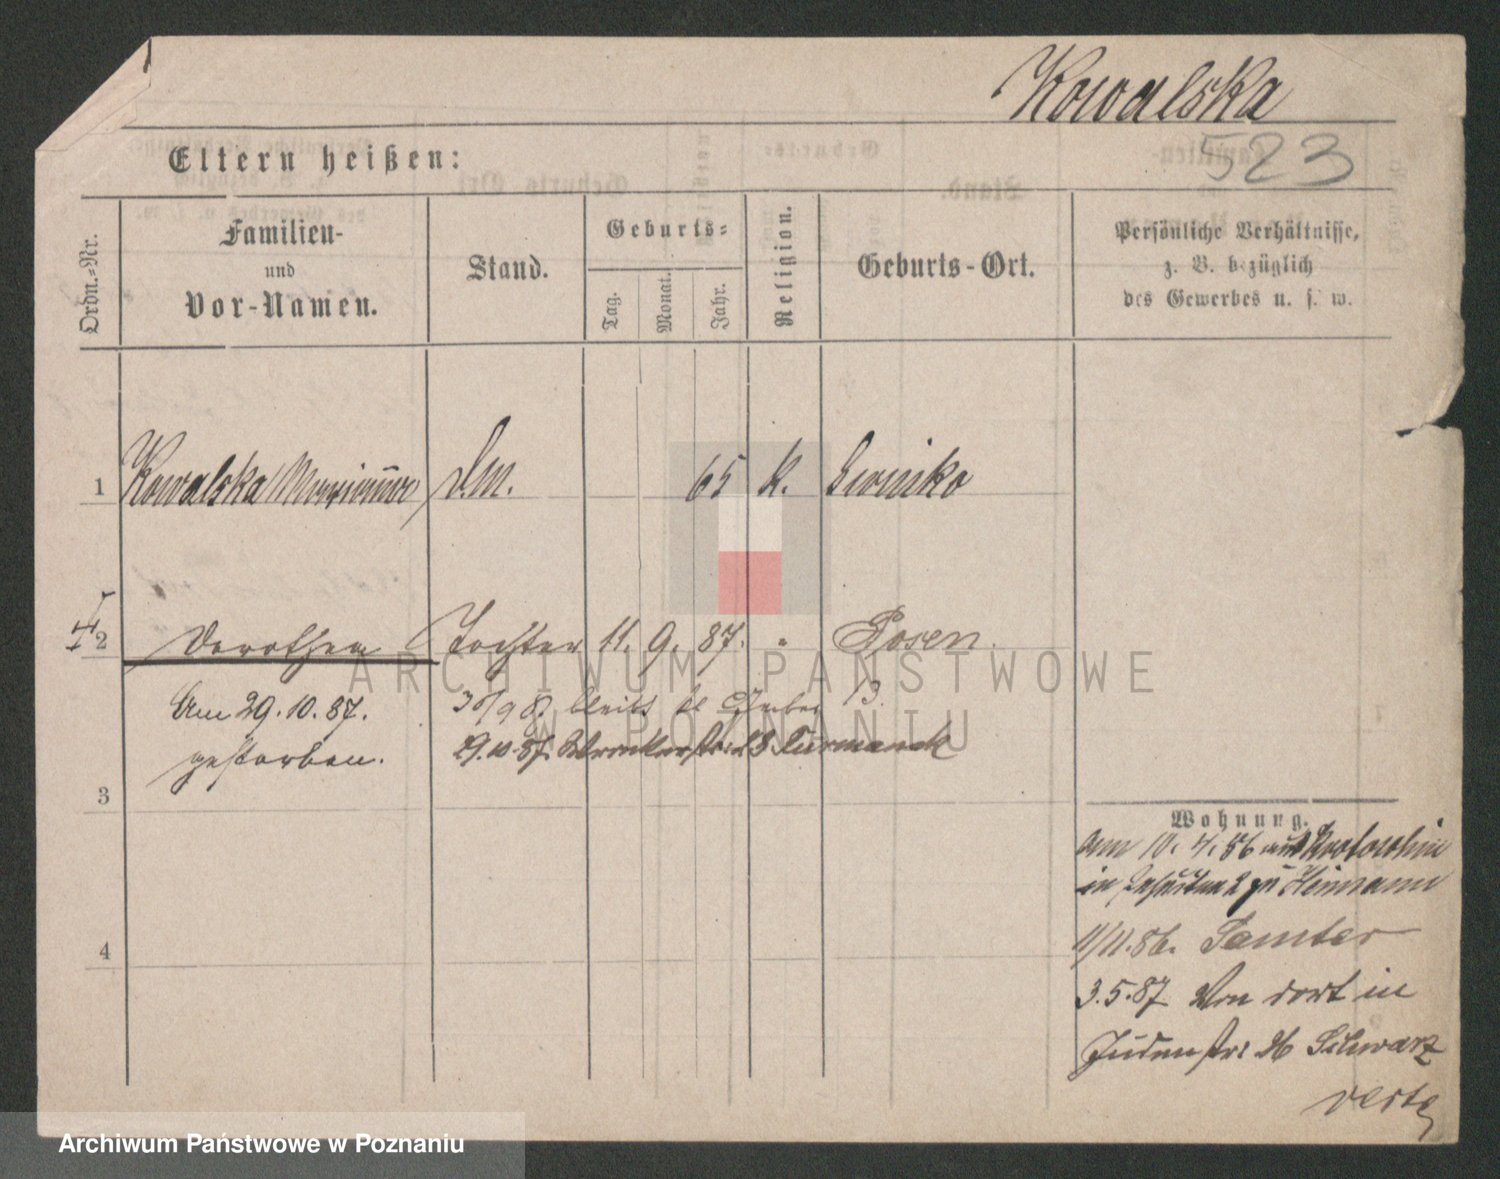 Kowalska
523
Eltern heißen:
Ordn.-Nr.
Familien-
und
Vor-Namen.
Stand.
Geburts-
Tag.
Monat.
Jahr.
Religion.
Geburts-Ort.
Persönliche Verhältnisse,
z. B. bezüglich
des Gewerbes u. s. w.
1 Kowalska Marianna D.M. 65 K.
2 Dorothea Tochter 11. 9. 87. " Posen.
Am 29.10.87.
gestorben.
bleibt 13.
29.10.87
3
4
Wohnung.
am 10.4.86 aus Krotoschin
in zu Heimann
11/11.86. Samter
3.5.87 Von dort in
Judenstr: 26 Schwarz
verte
ARCHIWUM PAŃSTWOWE
W POZNANIU
Archiwum Państwowe w Poznaniu